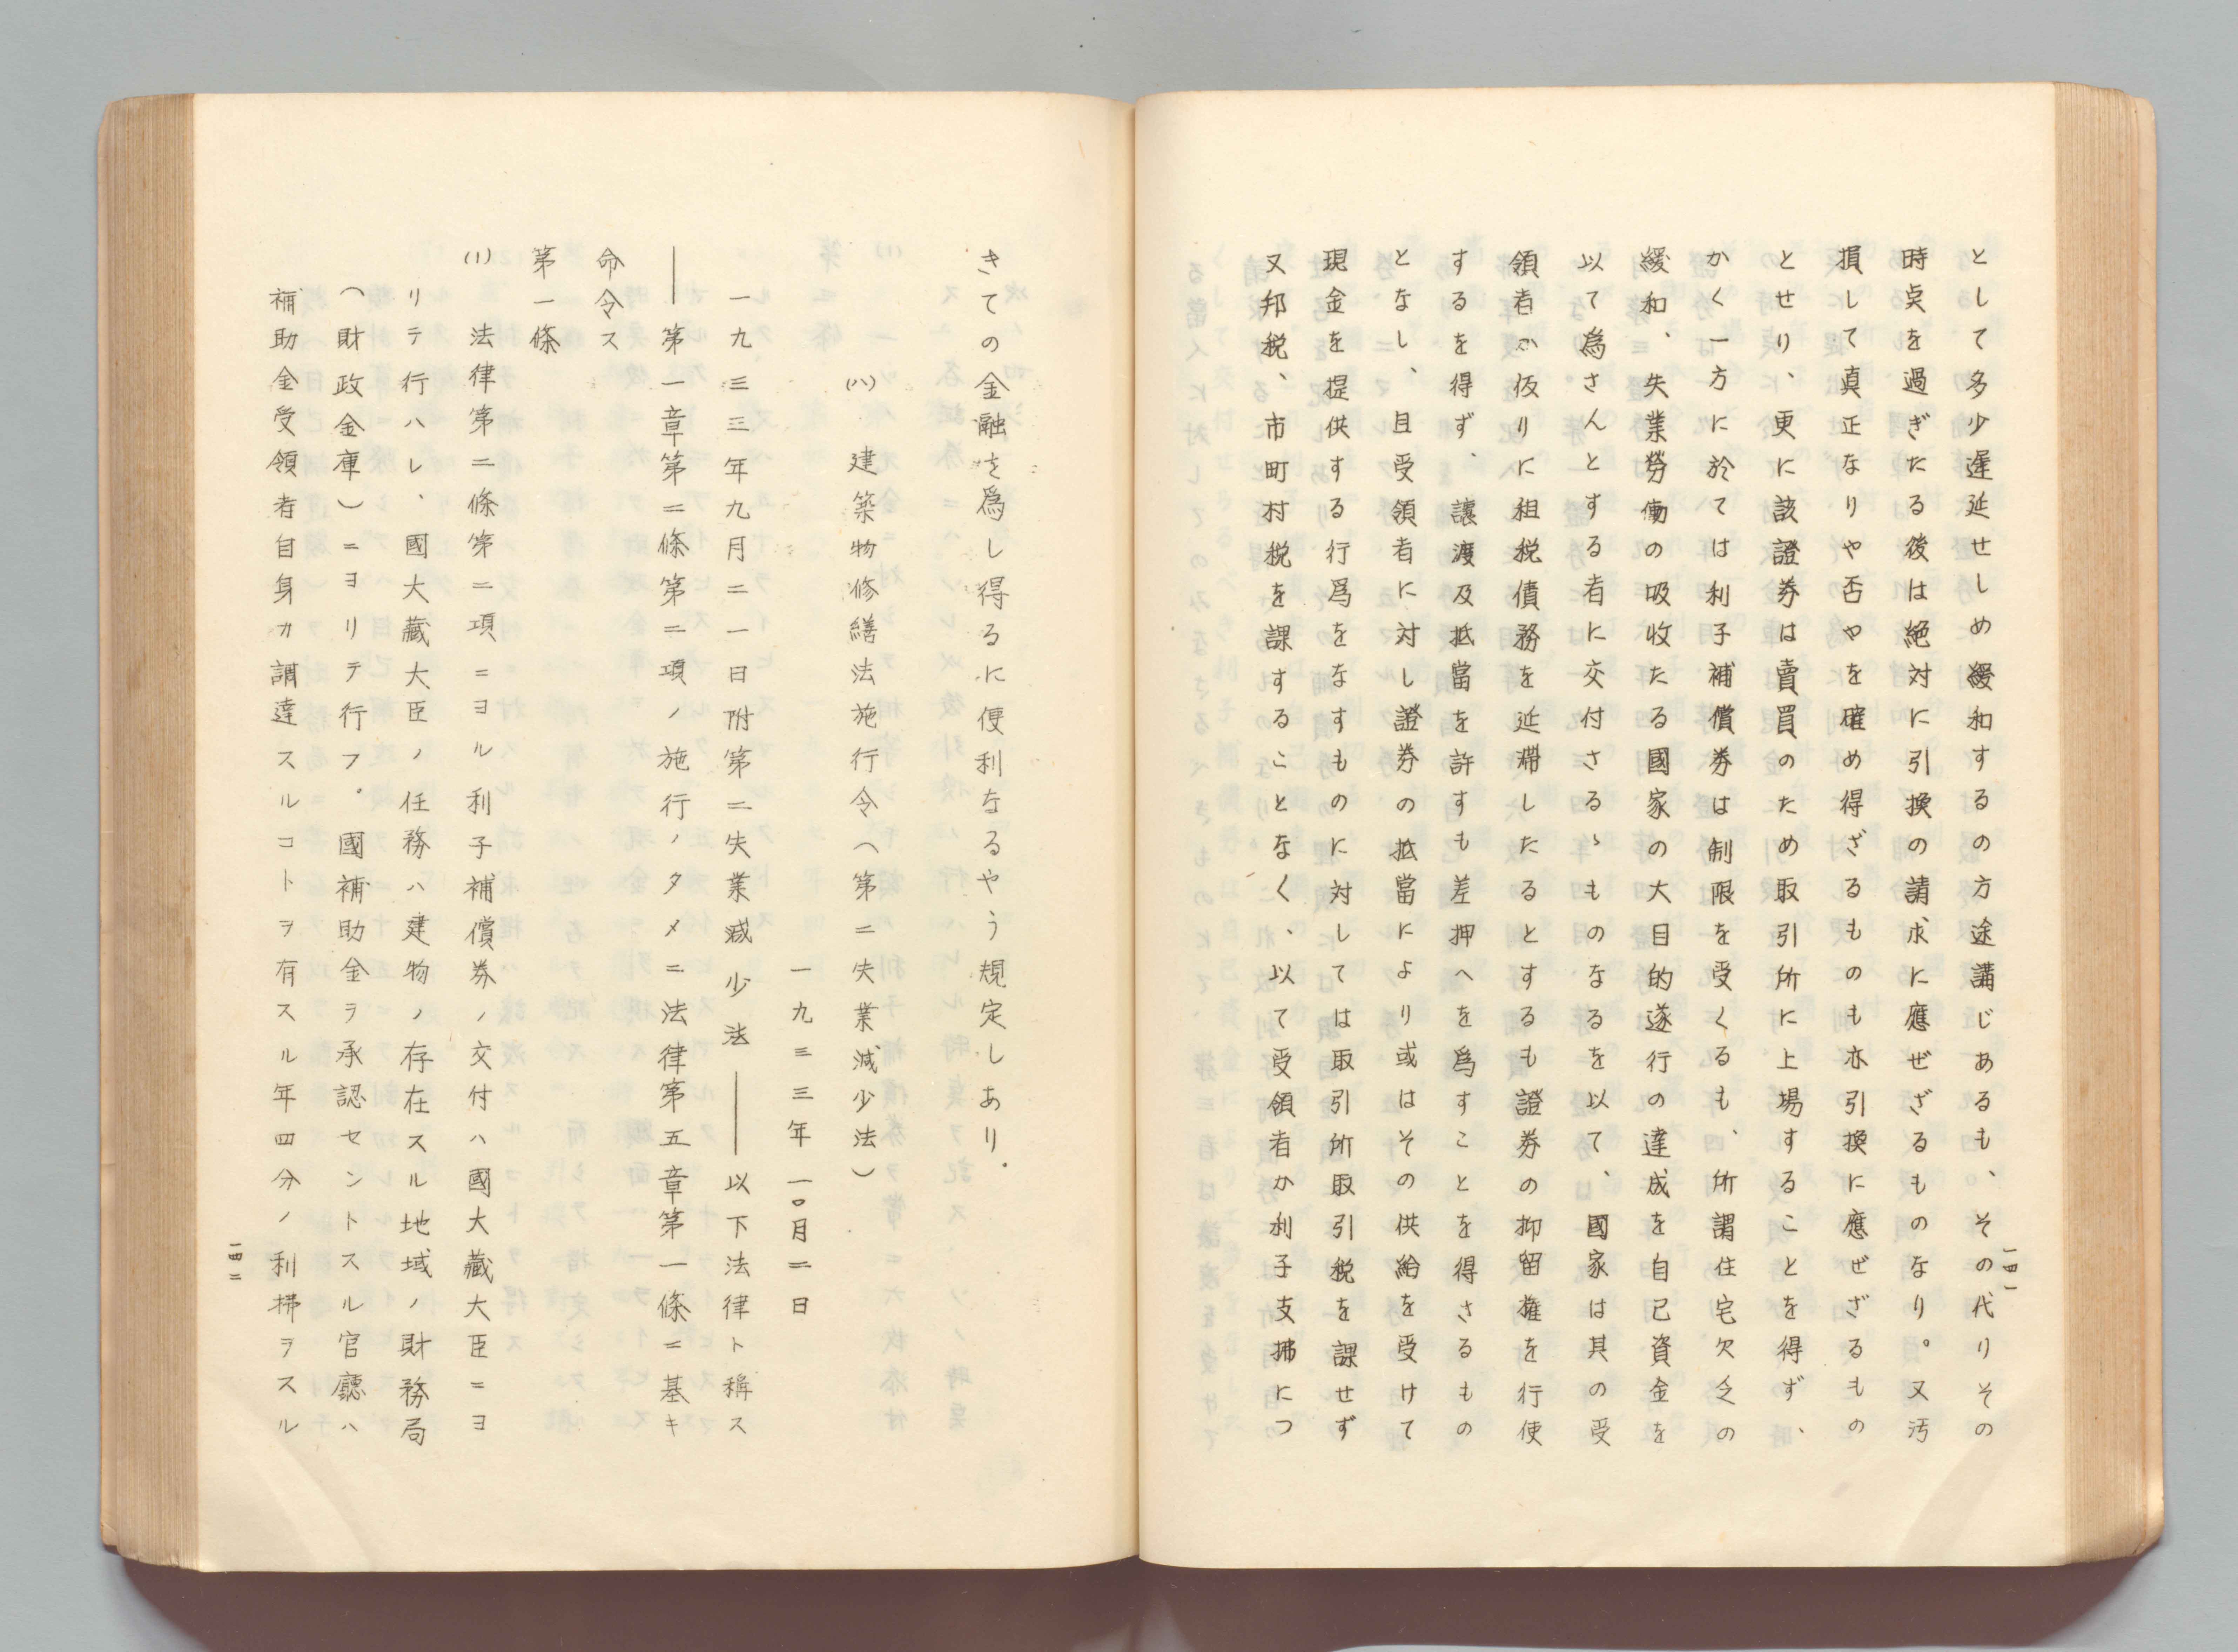 一四一
として多少遅延せしめ緩和するの方途講じあるも、その代りその
時点を過ぎたる後は絶対に引換の請求に應ぜざるものなり。又汚
損して真正なりや否やを確め得ざるものも亦引換に應ぜざるもの
とせり、更に該證券は賣買のため取引所に上場することを得ず、
かく一方に於ては利子補償券は制限を受くるも、所謂住宅欠乏の
緩和、失業勞働の吸收たる國家の大目的遂行の達成を自己資金を
以て爲さんとする者に交付さるゝものなるを以て、國家は其の受
領者か仮りに租税債務を延滯したるとするも證券の抑留権を行使
するを得ず、讓渡及抵當を許すも差押へを爲すことを得さるもの
となし、且受領者に対し證券の抵當により或はその供給を受けて
現金を提供する行爲をなすものに対しては取引所取引税を課せず
又邦税、市町村税を課することなく、以て受領者か利子支拂につ
きての金融を爲し得るに便利なるやう規定しあり。
(八) 建築物修繕法施行令(第二失業減少法)
一九三三年一〇月二日
一九三三年九月二一日附第二失業減少法――以下法律ト稱ス
――第一章第二條第二項ノ施行ノタメニ法律第五章第一條ニ基キ
命令ス
第一條
(1) 法律第二條第二項ニヨル利子補償券ノ交付ハ國大藏大臣ニヨ
リテ行ハレ、國大藏大臣ノ任務ハ建物ノ存在スル地域ノ財務局
(財政金庫)ニヨリテ行フ。國補助金ヲ承認セントスル官廳ハ
補助金受領者自身カ調達スルコトヲ有スル年四分ノ利拂ヲスル
一四二